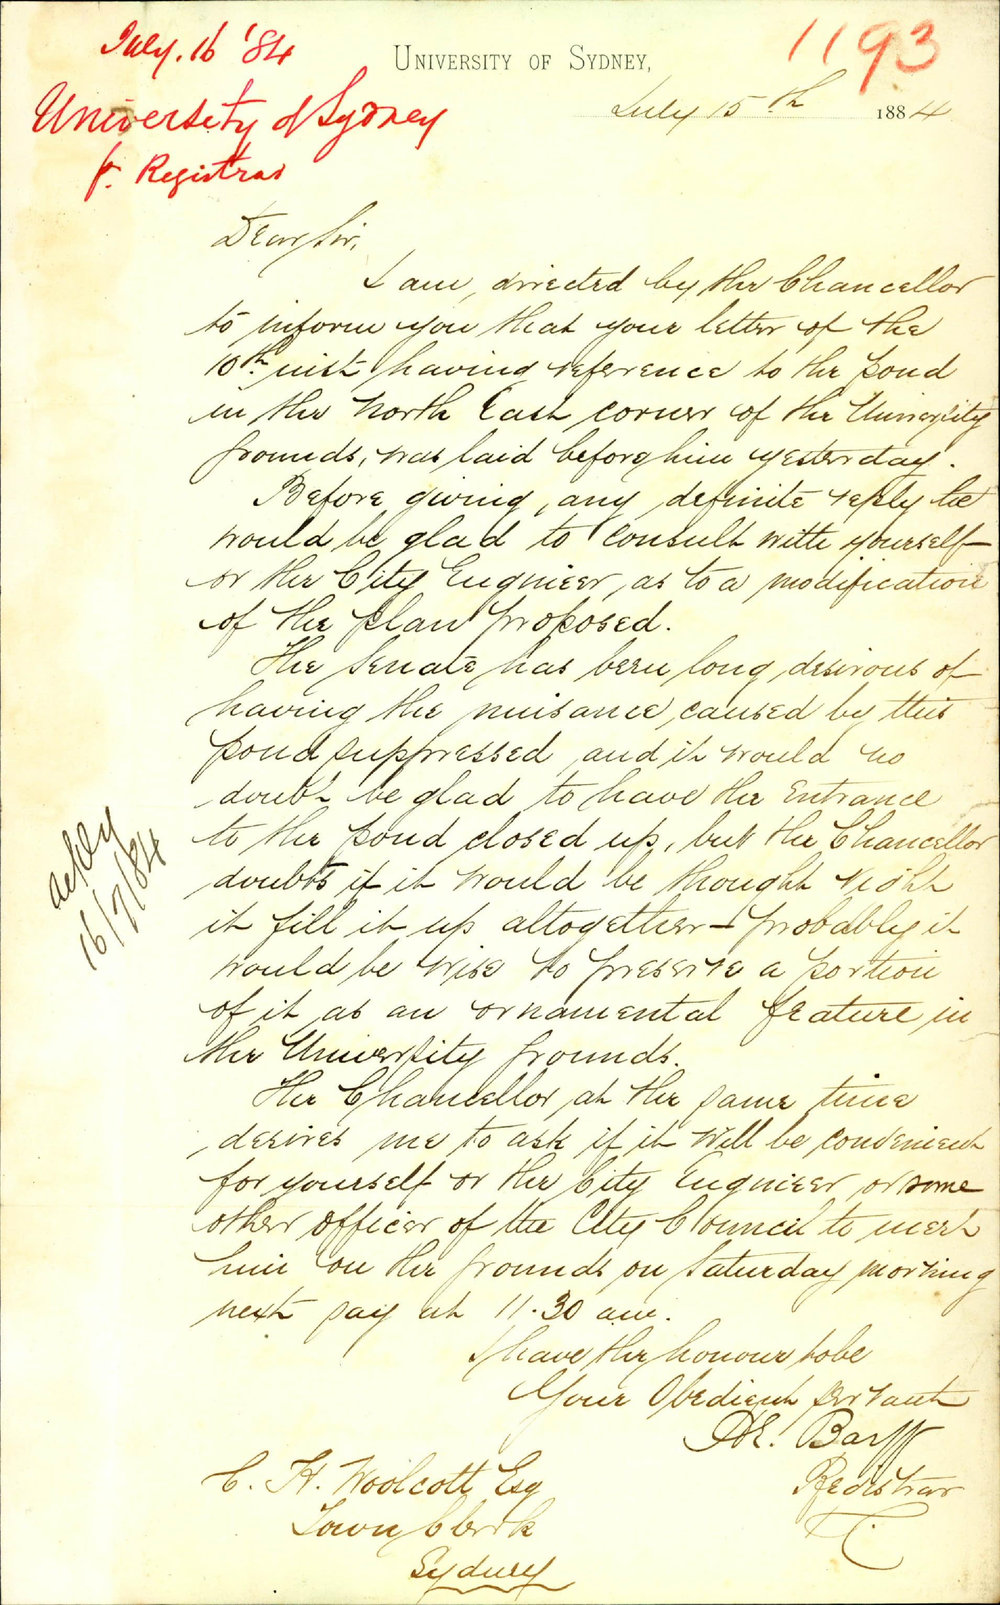 July. 16 '84
1193
University of Sydney
fr. Registrar
UNIVERSITY OF SYDNEY,
July 15th 1884
Dear Sir,
I am directed by the Chancellor
to inform you that your letter of the
10th inst having reference to the pond
in the North East corner of the University
grounds, was laid before him yesterday.
Before giving any definite reply he
would be glad to consult with yourself
or the City Engineer, as to a modification
of the plan proposed.
The Senate has been long desirous of
having the nuisance caused by this
pond suppressed and it would no
doubt be glad to have the entrance
to the pond closed up, but the Chancellor
doubts if it would be thought right
it fill it up altogether – probably it
would be wise to preserve a portion
of it as an ornamental feature in
the University grounds.
The Chancellor at the same time
desires me to ask if it will be convenient
for yourself or the City Engineer or some
other officer of the City Council to meet
him on the grounds on Saturday morning
next say at 11.30 am.
I have the honour to be
Your Obedient Servant
H.E. Barff
Registrar
C. H. Woolcott Esq
Town Clerk
Sydney
16/7/84